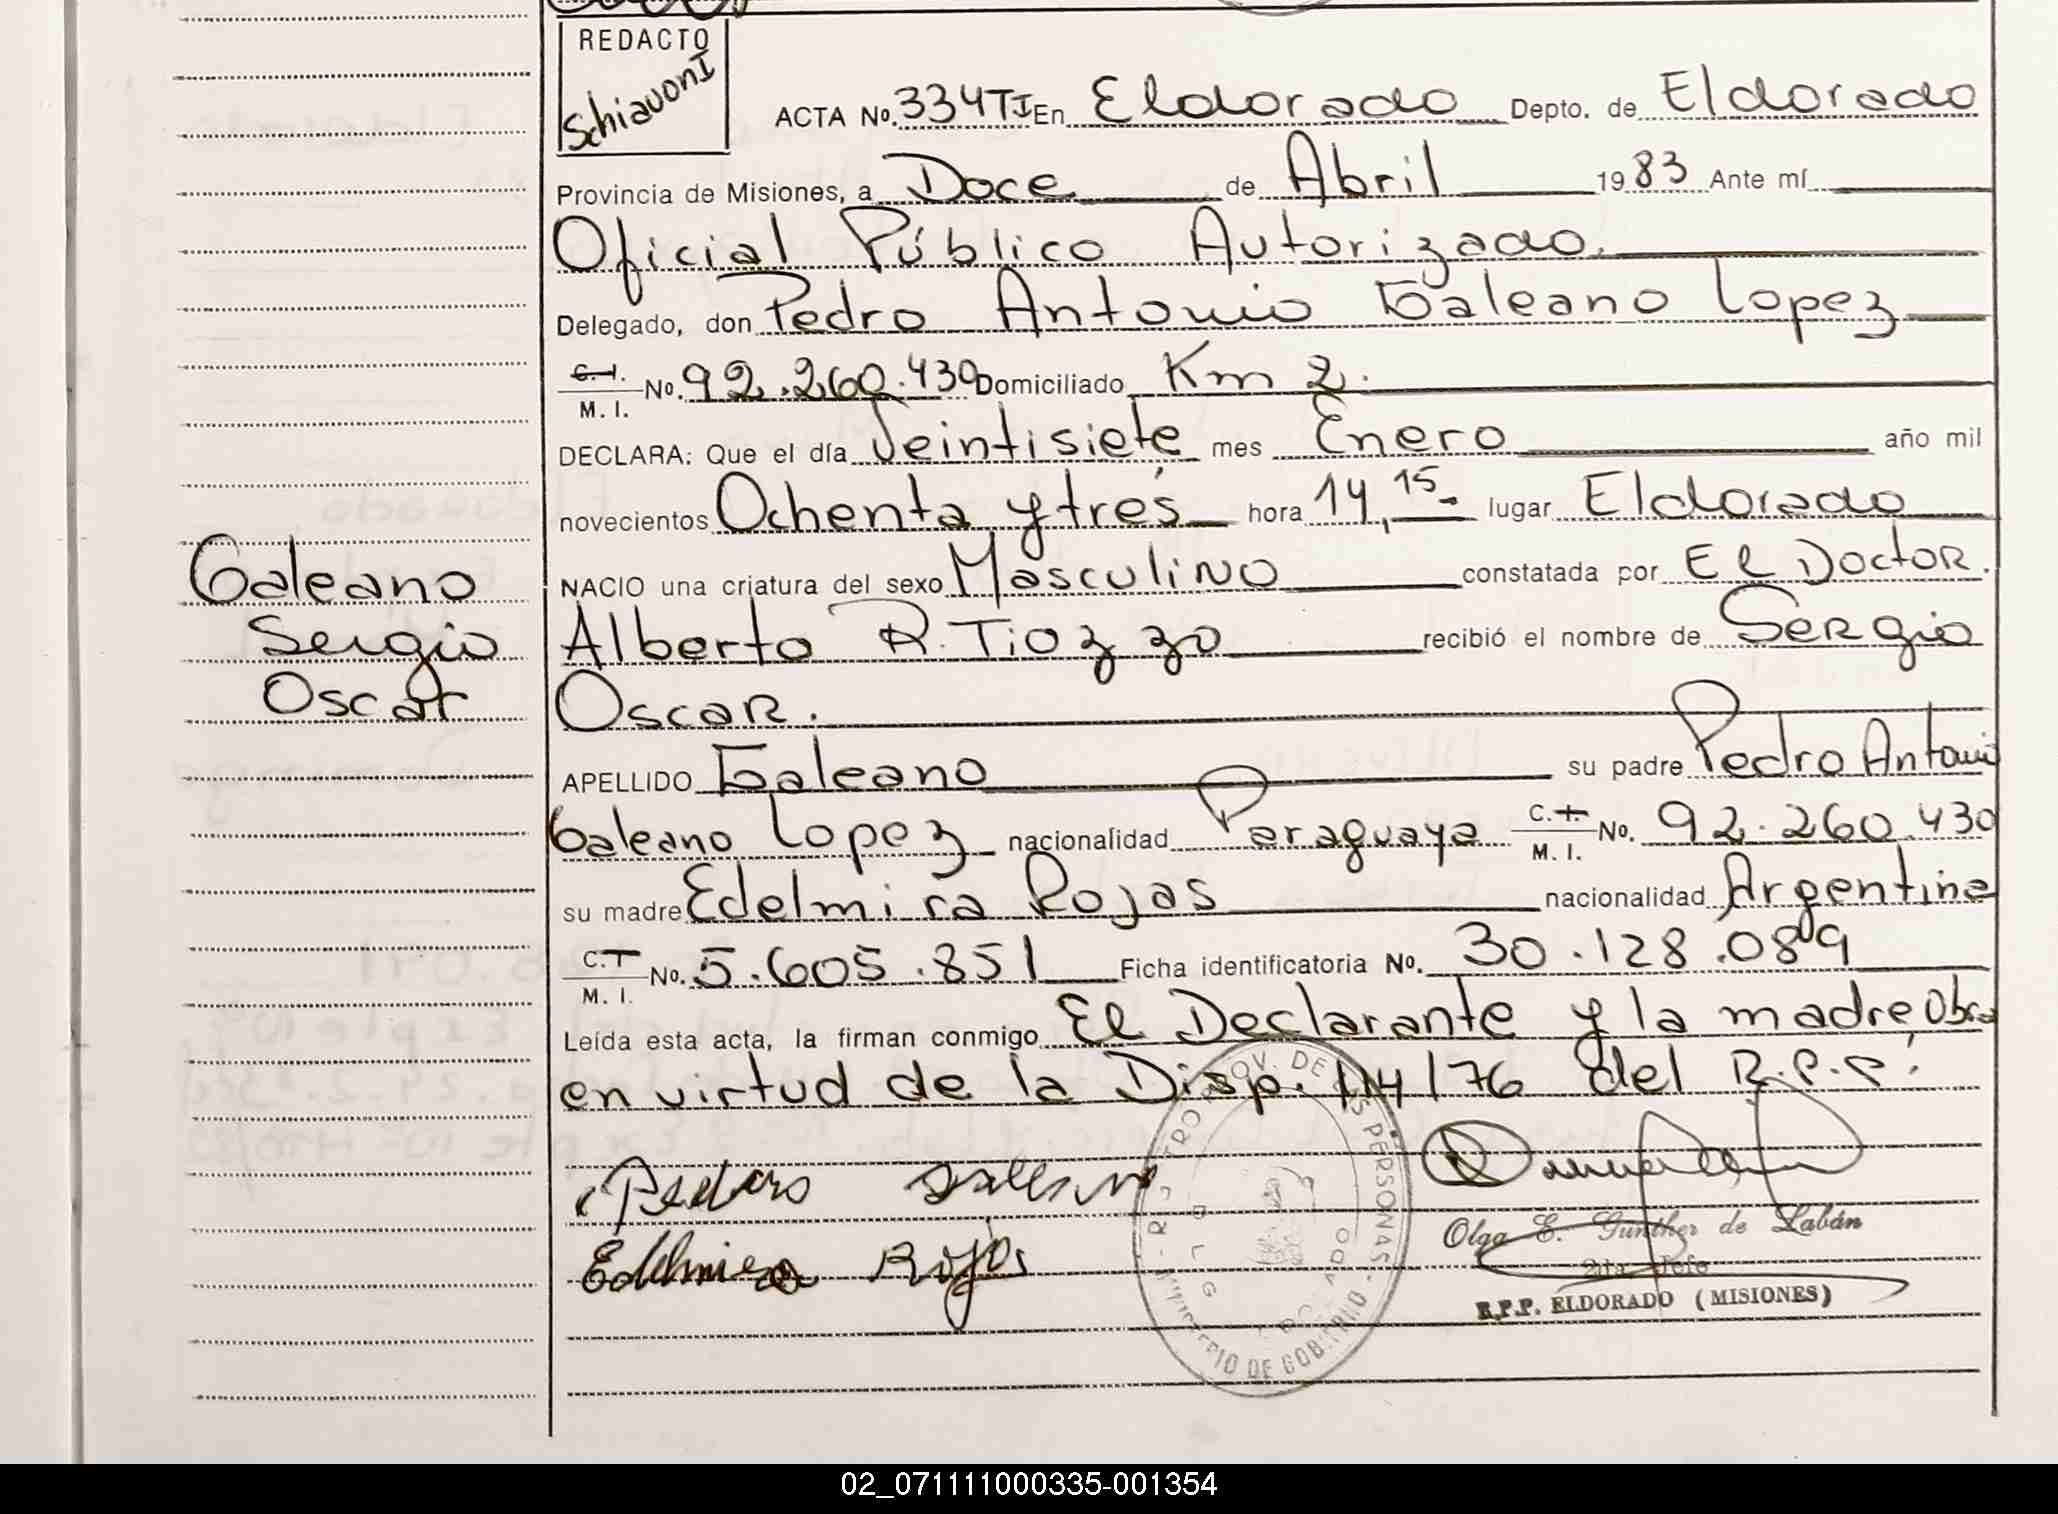 REDACTO
SchiavonI
ACTA No. 334TI En Eldorado Depto. de Eldorado
Provincia de Misiones, a Doce de Abril 1983 Ante mí
Oficial Público Autorizado.
Delegado, don Pedro Antonio Galeano Lopez
C.I. M. I. No. 92.260.430 Domiciliado Km 2.
DECLARA: Que el día Veintisiete mes Enero año mil
novecientos Ochenta y tres hora 14,15. lugar Eldorado
NACIO una criatura del sexo Masculino constatada por El Doctor.
Alberto R. Tiozzo recibió el nombre de Sergio
Oscar.
Galeano
Sergio
Oscar
APELLIDO Galeano su padre Pedro Antonio
Galeano Lopez nacionalidad Paraguaya C.I. M. I. No. 92.260.430
su madre Edelmira Rojas nacionalidad Argentina
C.I. M. I. No. 5.605.851 Ficha identificatoria No. 30.128.089
Leída esta acta, la firman conmigo El Declarante y la madre Obra
en virtud de la Disp. 114/76 del R.P.P.
Pedro Galeano
Edelmira Rojas
Olga E. Gunther de Labán
2da. Jefe
R.P.P. ELDORADO (MISIONES)
REGISTRO PROV. DE LAS PERSONAS - MINISTERIO DE GOBIERNO -
ELDORADO
02_071111000335-001354